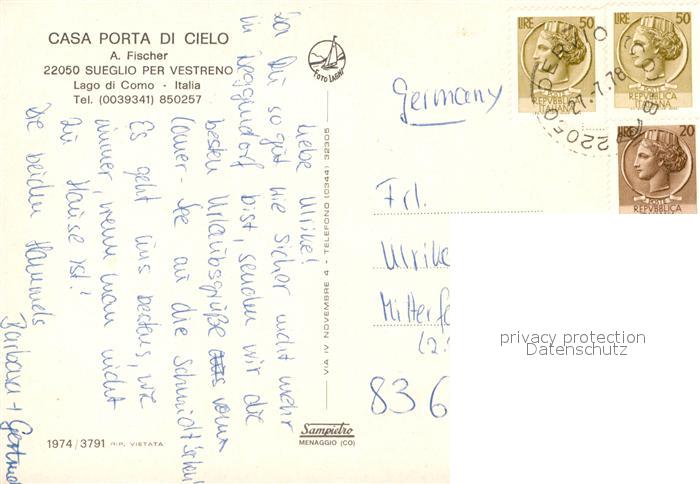 CASA PORTA DI CIELO
A. Fischer
22050 SUEGLIO PER VESTRENO
Lago di Como - Italia
Tel. (0039341) 850257
FOTO LAGHI
Liebe Ulrike!
Da Du so gut wie sicher nicht mehr
in Deggendorf bist, senden wir die
besten Urlaubsgrüße vom
Comer-See an die
Es geht uns bestens, wie
immer, wenn man nicht
zu Hause ist!
Die beiden Hammels
Barbara + Gertrud
1974/3791 RIP. VIETATA
VIA IV NOVEMBRE 4 - TELEFONO (0344) 32305
Sampietro
MENAGGIO (CO)
LIRE 50
POSTE
REPVBBLICA
ITALIANA
LIRE 50
POSTE
REPVBBLICA
ITALIANA
LIRE 20
POSTE
REPVBBLICA
27.7.78
Germany
Frl.
Ulrike
Mitterfe
836
privacy protection
Datenschutz